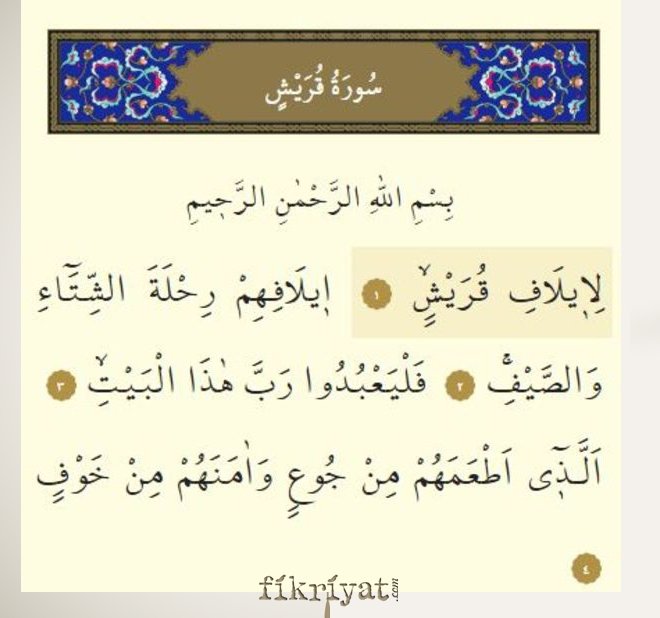 سُورَةُ قُرَيْشٍ
بِسْمِ اللّٰهِ الرَّحْمٰنِ الرَّح۪يمِ
لِا۪يلَافِ قُرَيْشٍۙ ١ ا۪يلَافِهِمْ رِحْلَةَ الشِّتَٓاءِ
وَالصَّيْفِۚ ٢ فَلْيَعْبُدُوا رَبَّ هٰذَا الْبَيْتِۙ ٣
اَلَّذ۪ٓى اَطْعَمَهُمْ مِنْ جُوعٍ وَاٰمَنَهُمْ مِنْ خَوْفٍ
٤
fikriyat.com